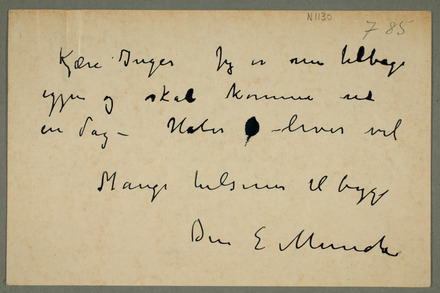 N1130
7 85
Kjære Inger Jeg er nu tilbage
igjen og skal komme ud
en dag – Haber – lever vel
Mange hilsener til begge
Din E Munch